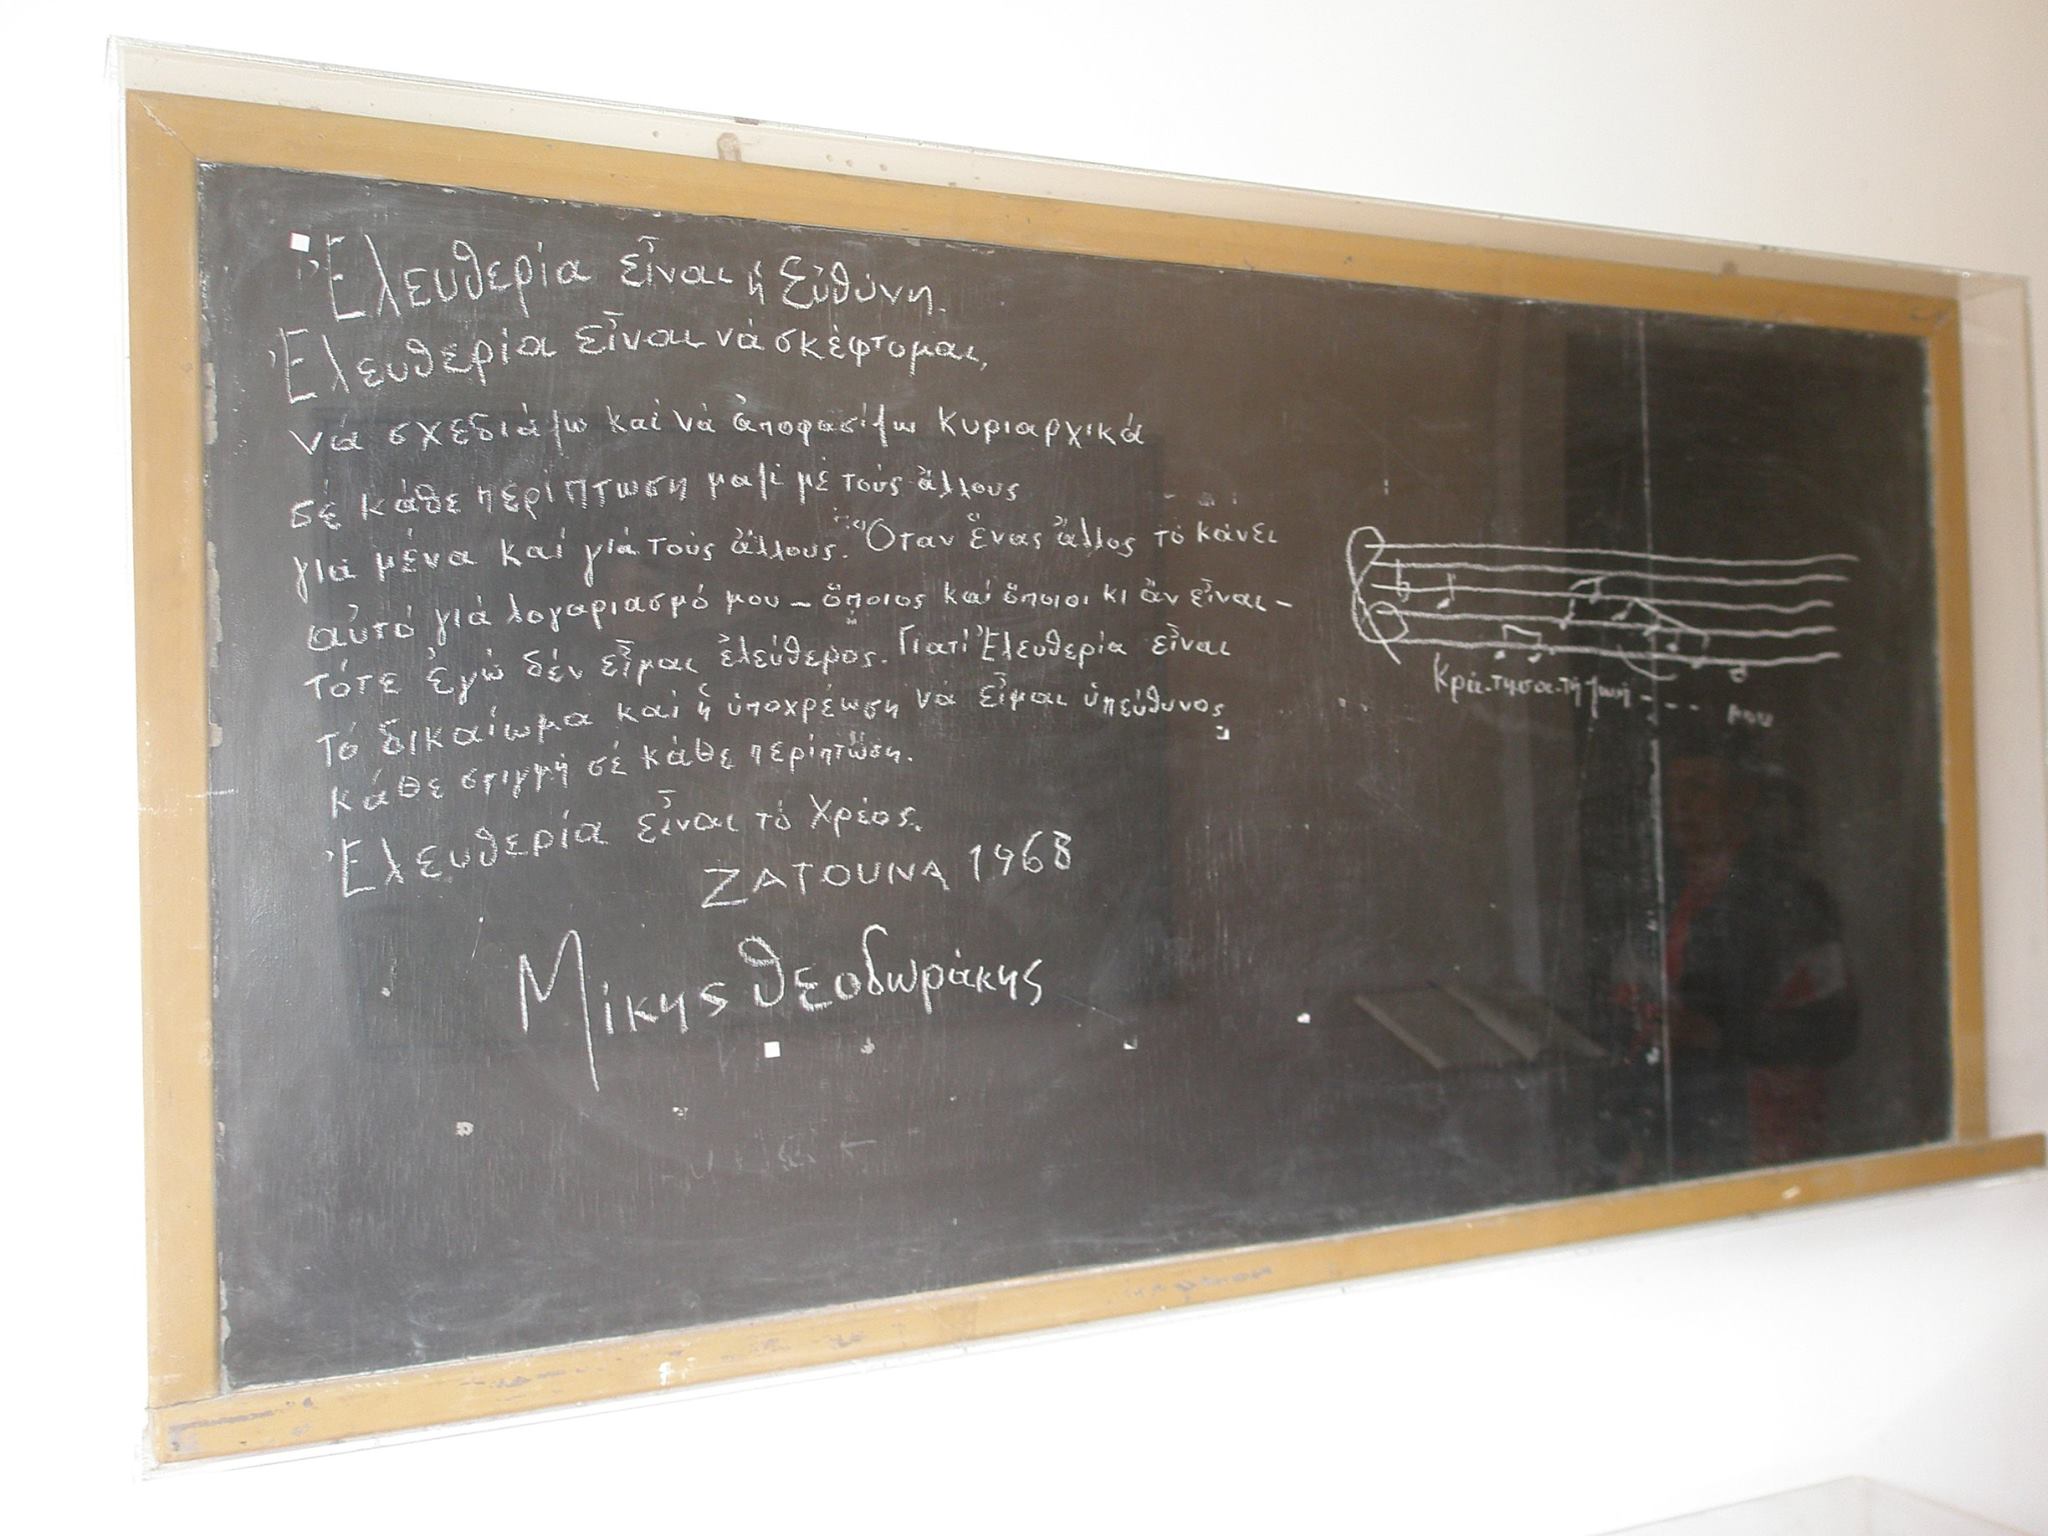 Ἐλευθερία εἶναι ἡ Εὐθύνη.
Ἐλευθερία εἶναι νά σκέφτομαι,
νά σχεδιάζω καί νά ἀποφασίζω κυριαρχικά
σέ κάθε περίπτωση μαζί μέ τούς ἄλλους
γιά μένα καί γιά τούς ἄλλους. Ὅταν ἕνας ἄλλος τό κάνει
αὐτό γιά λογαριασμό μου – ὅποιος καί ὅποιοι κι ἄν εἶναι –
τότε ἐγώ δέν εἶμαι ἐλεύθερος. Γιατί Ἐλευθερία εἶναι
τό δικαίωμα καί ἡ ὑποχρέωση νά εἶμαι ὑπεύθυνος
κάθε στιγμή σέ κάθε περίπτωση.
Ἐλευθερία εἶναι τό Χρέος.
ΖΑΤΟΥΝΑ 1968
Μίκης Θεοδωράκης
Κρά-τησα-τή ζωή - - - - μου